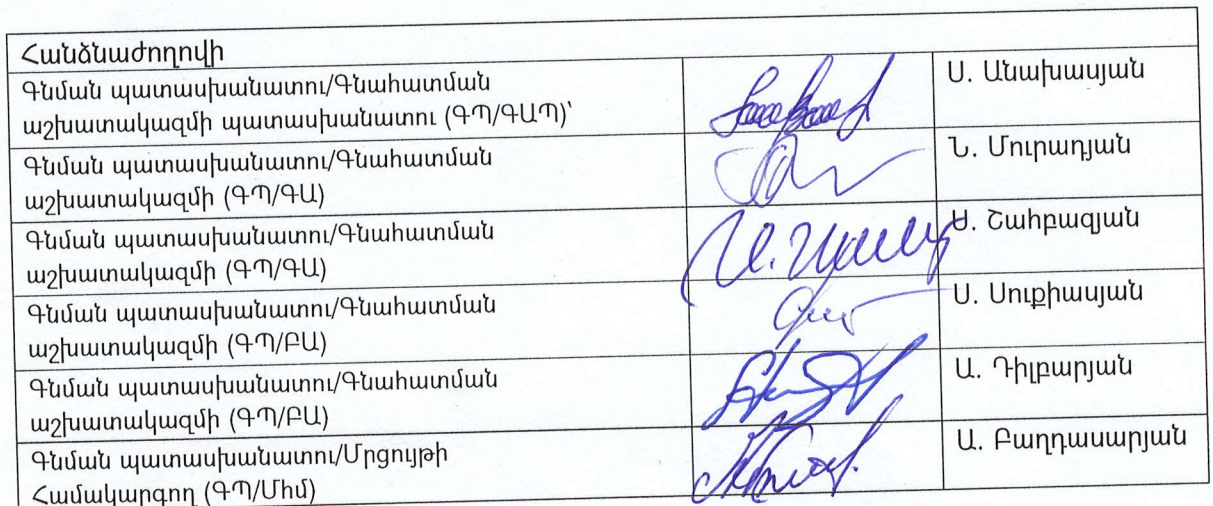 Հանձնաժողովի
Գնման պատասխանատու/Գնահատման
աշխատակազմի պատասխանատու (ԳՊ/ԳԱՊ)՝
Ս. Անախասյան
Գնման պատասխանատու/Գնահատման
աշխատակազմի (ԳՊ/ԳԱ)
Ն. Մուրադյան
Գնման պատասխանատու/Գնահատման
աշխատակազմի (ԳՊ/ԳԱ)
Ս. Շահբազյան
Գնման պատասխանատու/Գնահատման
աշխատակազմի (ԳՊ/ԲԱ)
Ս. Սուքիասյան
Գնման պատասխանատու/Գնահատման
աշխատակազմի (ԳՊ/ԲԱ)
Ա. Դիլբարյան
Գնման պատասխանատու/Մրցույթի
Համակարգող (ԳՊ/Մհմ)
Ա. Բաղդասարյան